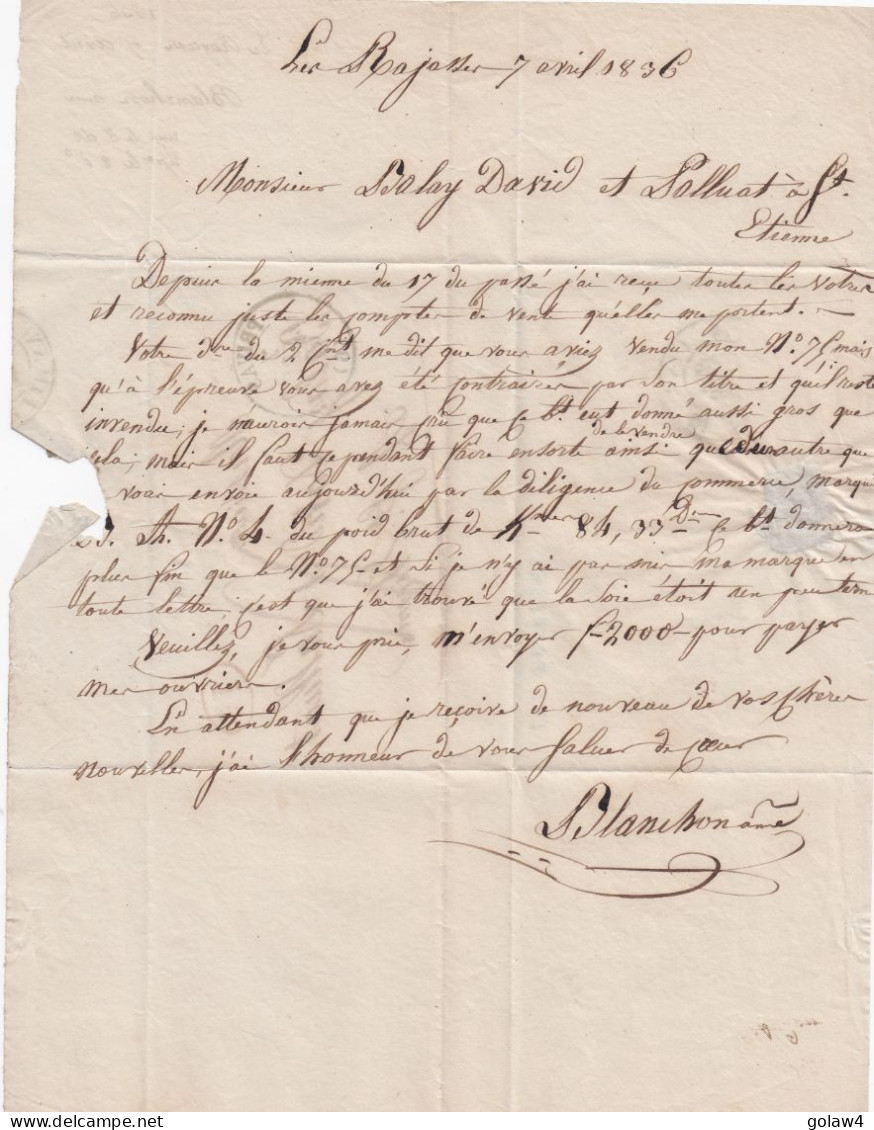 Les Rajasses 7 avril 1836
Monsieur Balay David et Palluat à St.
Etienne
Depuis la mienne du 17 du passé j'ai reçue toutes les votres
et reconnu juste les comptes de vente qu'élles me portent. -
Votre dre du 2 Cnt me dit que vous aviez vendu mon No. 75 mais
qu'à l'épreuve vous avez été contrairés par son titre et qu'il reste
invendu, je n'aurois jamais crû que ce bt. eut donné aussi gros que
de le vendre
cela; mais il faut cependant faire ensorte ainsi que un autre que
vous envoie aujourd'hui par la diligence du commerce, marqué
B. A. No. 4. du poid brut de K 84,33 D ce bt. donnera
plus fin que le No. 75 et si je n'y ai pas mis ma marque en
toute lettre, c'est que j'ai trouvé que la soie étoit un peu terne
Veuillez, je vous prie, m'envoyer f-2000- pour payer
mes ouvriers.
En attendant que je reçoive de nouveau de vos chères
nouvelles, j'ai l'honneur de vous saluer de cœur
Blanchon ainé
golaw4